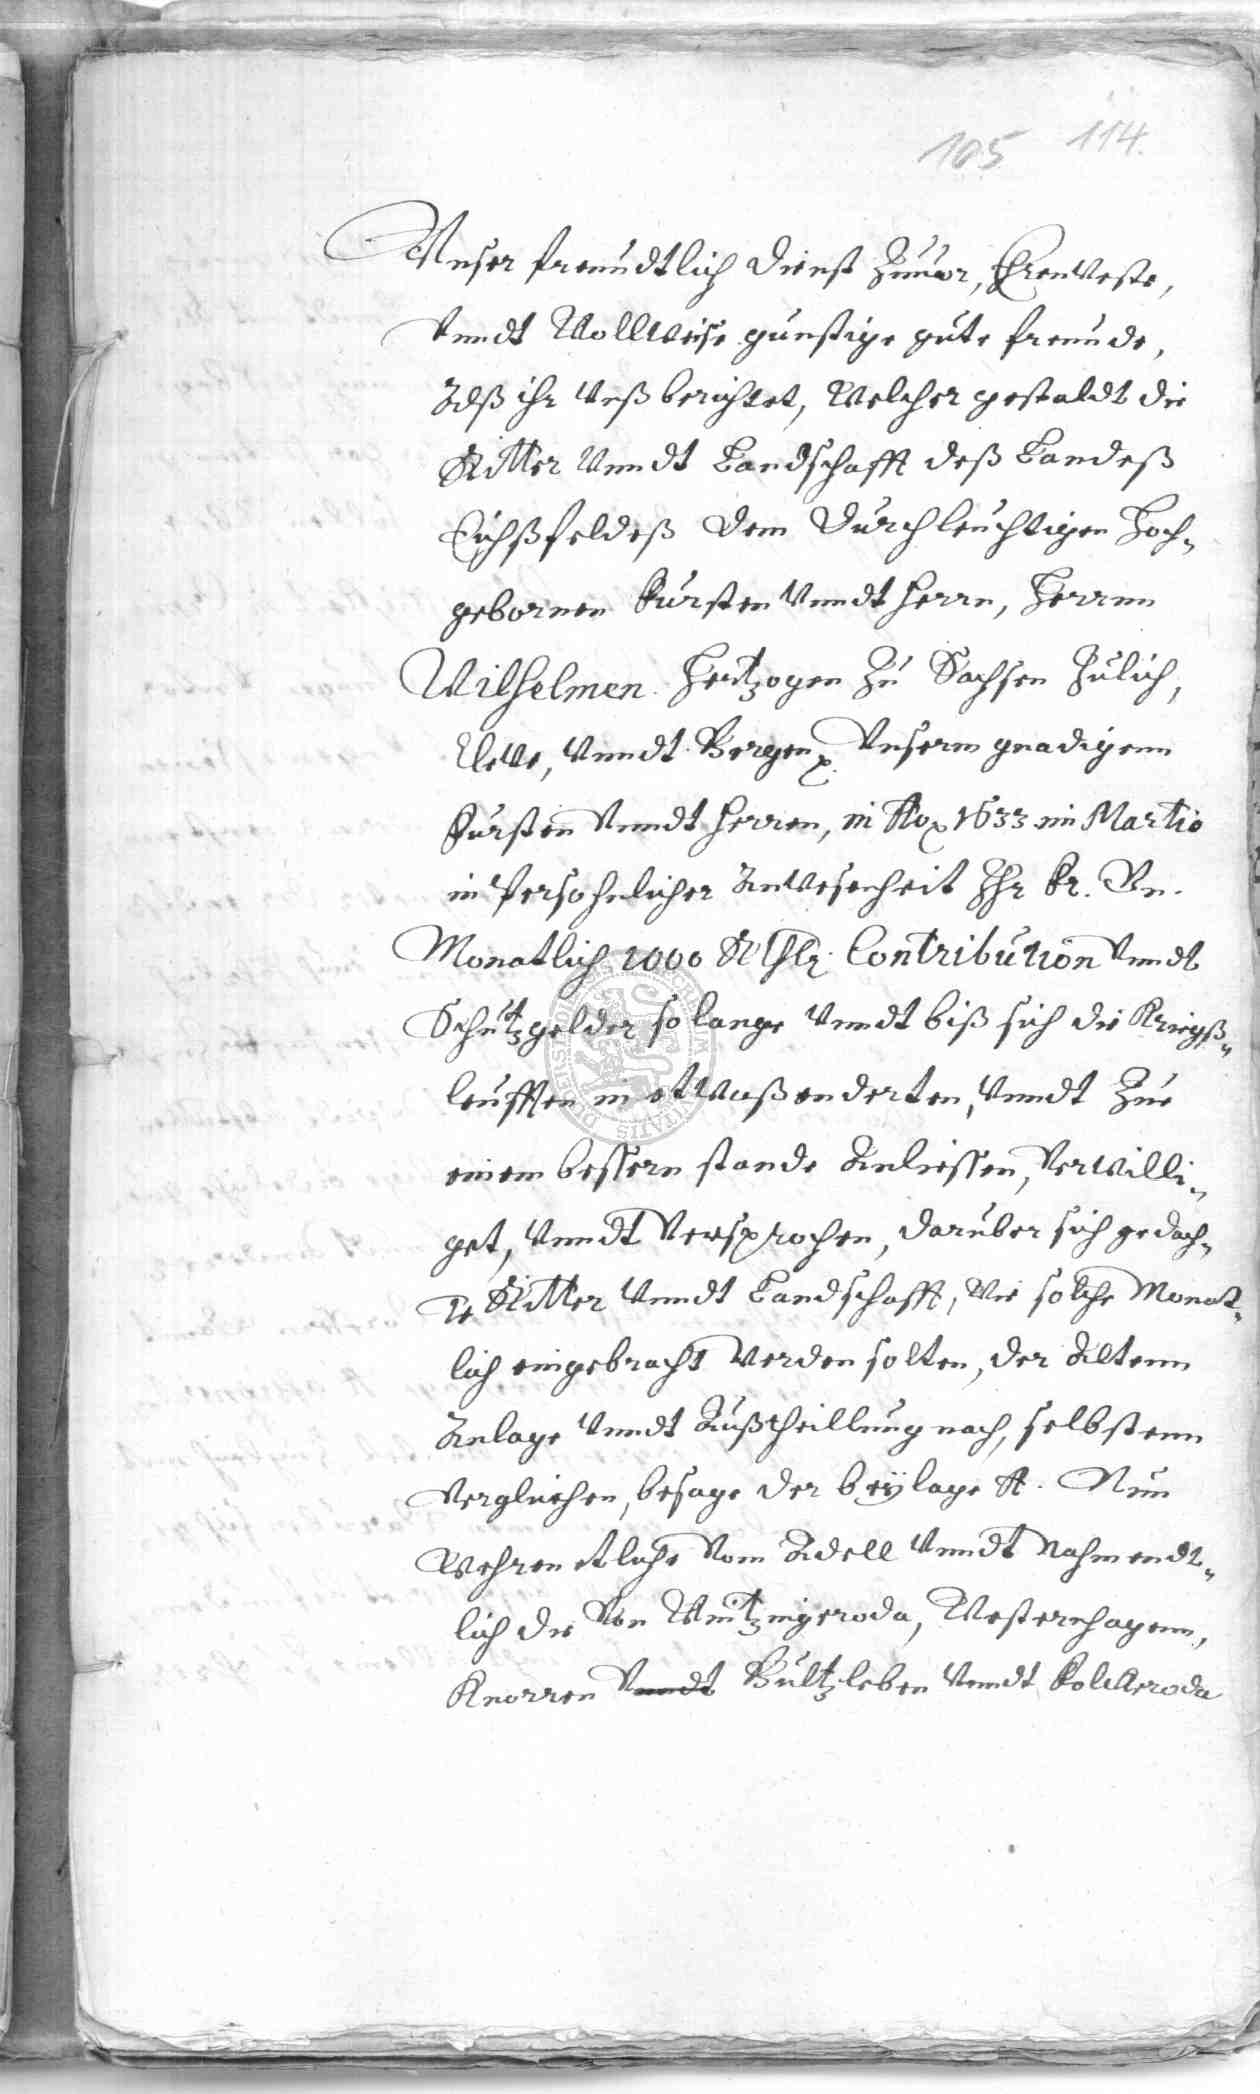 105 114.
Unser freundtlich dienst Zuuor, Ehrenveste,
Vnndt Wollweise günstige gute freunde,
Alß ihr Vnß berichtet, Welcher gestaldt die
Ritter Vnndt Landschafft deß Landeß
Eichßfeldeß dem Durchleuchtigen Hoch-
gebornen Fürsten Vnndt Herrn, Herrnn
Wilhelmen Hertzogen Zu Sachsen Jülich,
Cleve, Vnndt Bergen Vnserm gnadigenn
Fürsten Vnndt Herren, in Ao 1633 im Martio
in Persohnlicher Anwesenheit Ihr Fr. Gn.
Monatlich 1000 Rthlr. Contribution Vnndt
Schutzgelder so lange Vnndt biß sich die Kriegß-
leufften in etwaß enderten, Vnndt Zue
einem bessern stande Anliessen, Verwilli-
get, Vnndt Versprochen, darüber sich gedach-
te Ritter Vnndt Landschafft, Wie solche Monat-
lich eingebracht Werden solten, der Altenn
Anlage Vnndt Außtheillung nach, selbstenn
Verglichen, besage der beylage A. Nun
Wehren etliche Vom Adell Vnndt Nahmendt-
lich die Von Wintzingeroda, Westernhagenn,
Knorren Vnndt Bültzleben Vnndt Bolckeroda